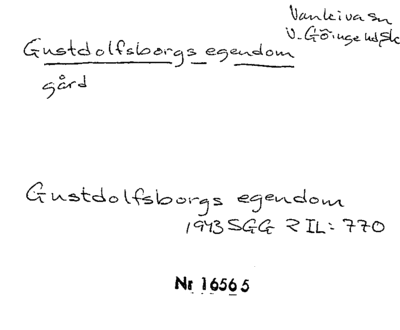 Vankiva sn
V. Göinge hd, Sk
Gustdolfsborgs egendom
gård
Gustdolfsborgs egendom
1943 SGG R IL: 770
Nr 16565